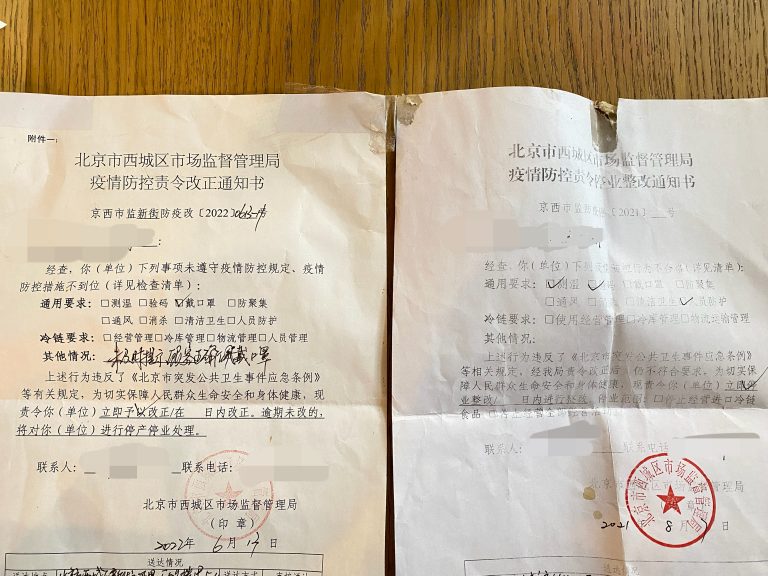 附件一:
北京市西城区市场监督管理局
疫情防控责令改正通知书
京西市监新街防疫改〔2022〕0613-1号
:
经查,你(单位)下列事项未遵守疫情防控规定、疫情
防控措施不到位(详见检查清单):
通用要求: □测温 □验码 ☑戴口罩 □防聚集
□通风 □消杀 □清洁卫生 □人员防护
冷链要求: □经营管理 □冷库管理 □物流管理 □人员管理
其他情况: 未及时提示顾客正确佩戴口罩
上述行为违反了《北京市突发公共卫生事件应急条例》
等有关规定,为切实保障人民群众生命安全和身体健康,现
责令你(单位)立即予以改正/在 日内改正。逾期未改的,
将对你(单位)进行停产停业处理。
联系人: 联系电话:
北京市西城区市场监督管理局
(印章)
2022年 6月 13日
送达情况
送达地点 送达方式
北京市西城区市场监督管理局
疫情防控责令停业整改通知书
京西市监 〔2021〕 号
:
经查,你(单位)下列 不合格(详见清单):
通用要求: ☑测温 ☑ □戴口罩 □防聚集
□通风 □消杀 □清洁卫生 ☑人员防护
冷链要求: □使用经营管理 □冷库管理 □物流运输管理
其他情况:
上述行为违反了《北京市突发公共卫生事件应急条例》
等相关规定,经我局责令改正后,仍不符合要求,为切实保
障人民群众生命安全和身体健康,现责令你(单位)立即停
业整改/ 日内进行整改。停业范围:□停止经营进口冷链
食品 □停止经营全部经营活动。
联系人: 联系电话
北京市西城区市场监督管理局
2021 8月 日
送达情况